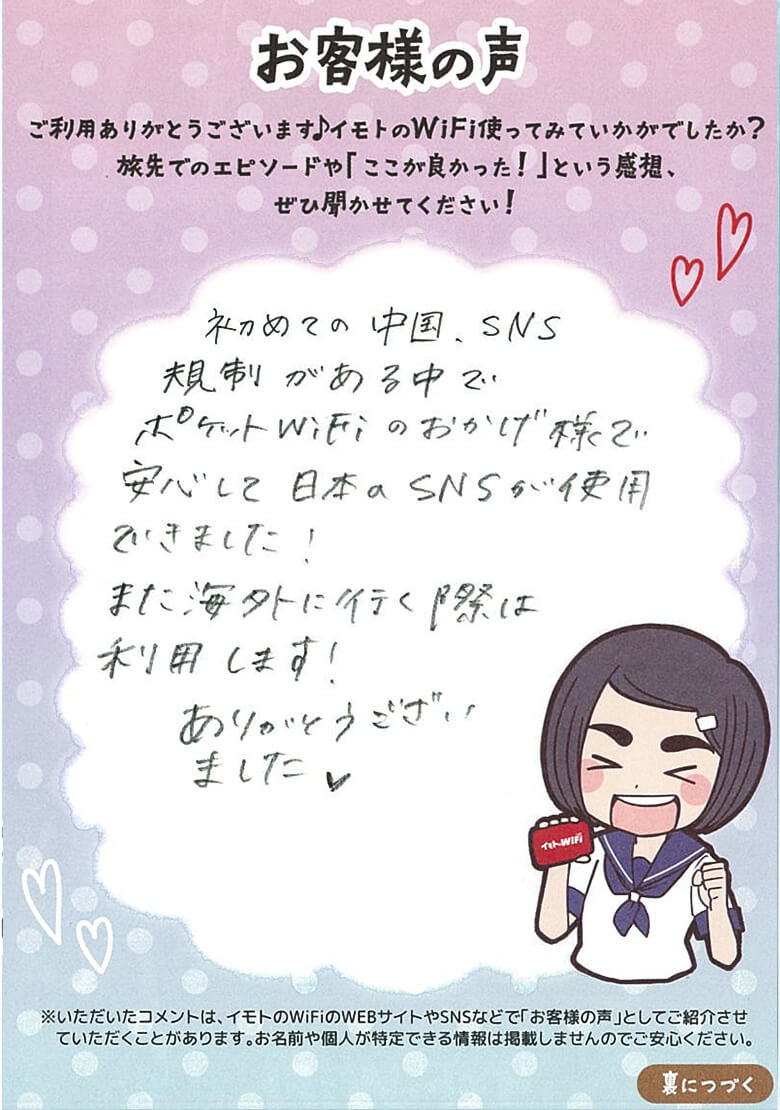 お客様の声
ご利用ありがとうございます♪イモトのWiFi使ってみていかがでしたか?
旅先でのエピソードや「ここが良かった!」という感想、
ぜひ聞かせてください!
初めての中国、SNS
規制がある中で
ポケットWiFiのおかげ様で
安心して日本のSNSが使用
できました!
また海外に行く際は
利用します!
ありがとうござい
ました♥
イモトのWiFi
※いただいたコメントは、イモトのWiFiのWEBサイトやSNSなどで「お客様の声」としてご紹介させ
ていただくことがあります。お名前や個人が特定できる情報は掲載しませんのでご安心ください。
裏につづく